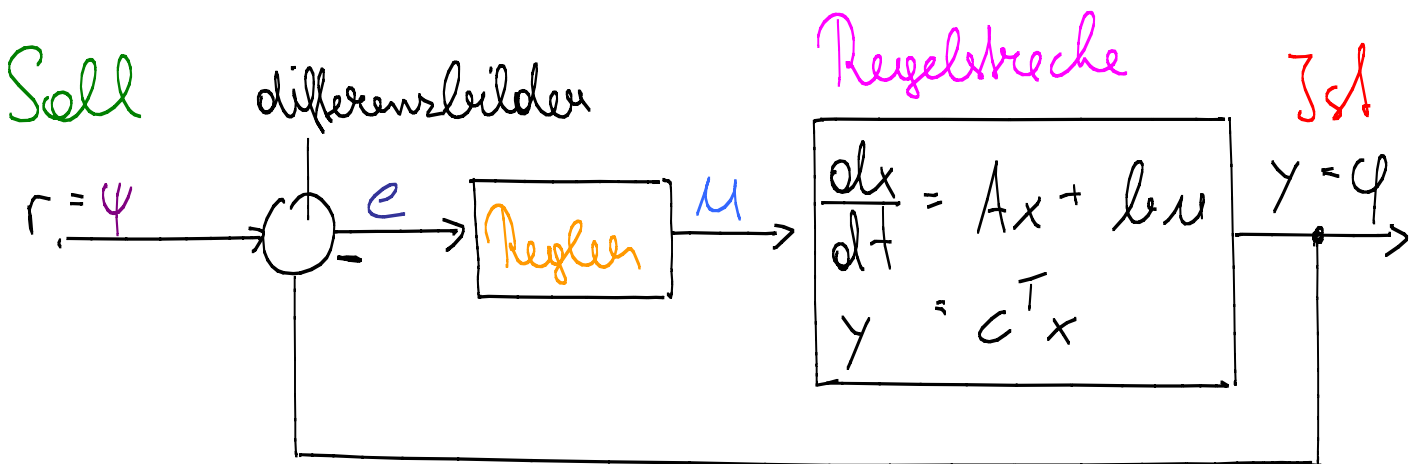 Soll
differenzbilder
Regelstrecke
Ist
r = ψ
e
Regler
u
dx/dt = Ax + bu
y = cᵀx
y = φ
-